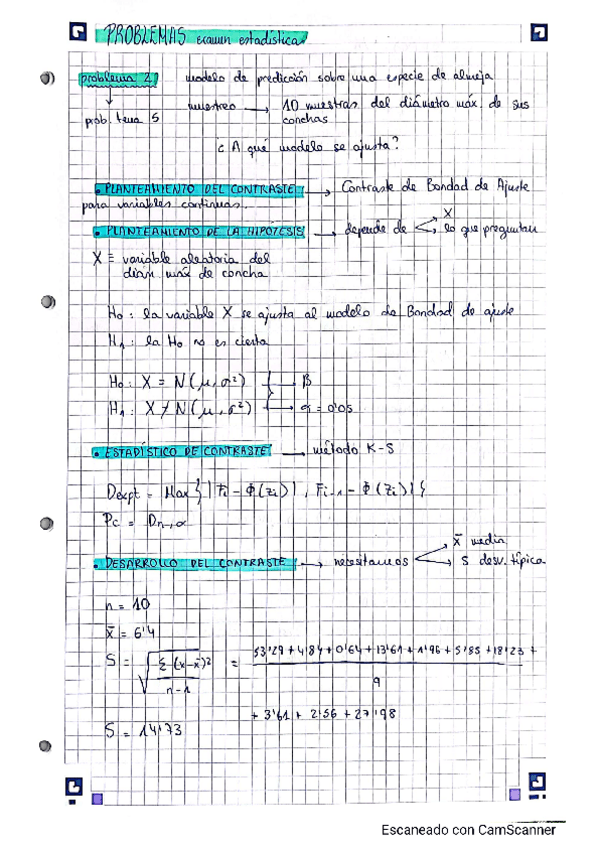 PROBLEMAS examen estadística
problema 2 modelo de predicción sobre una especie de almeja
prob. tema 5 muestreo → 10 muestras del diámetro máx. de sus
conchas
¿A qué modelo se ajusta?
• PLANTEAMIENTO DEL CONTRASTE → Contraste de Bondad de Ajuste
para variables continuas.
• PLANTEAMIENTO DE LA HIPÓTESIS → depende de X
lo que preguntan
X = variable aleatoria del
diám máx de concha
H0: la variable X se ajusta al modelo de Bondad de ajuste
H1: la H0 no es cierta
H0: X = N(μ, σ²) → β
H1: X ≠ N(μ, σ²) → α = 0'05
• ESTADÍSTICO DE CONTRASTE → método K-S
Dexpt = Max { | Fi - Φ(zi) | , Fi-1 - Φ(zi) | }
Pc = Dn, α
• DESARROLLO DEL CONTRASTE → necesitamos x̄ media
S desv. típica
n = 10
x̄ = 6'4
S = √ Σ(x-x̄)² / n-1 = 53'29 + 4'84 + 0'64 + 13'61 + 1'96 + 5'85 + 18'23 +
9
+ 3'61 + 2'56 + 27'98
S = 14'73
Escaneado con CamScanner